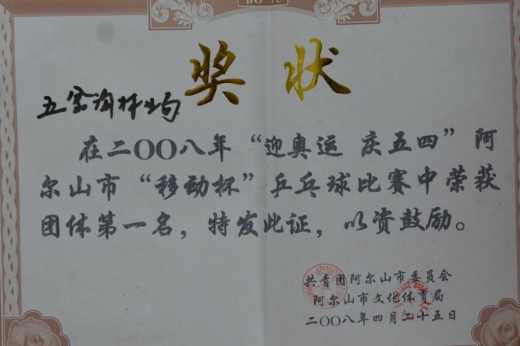 奖状
五岔沟林业局
在二〇〇八年“迎奥运 庆五四”阿
尔山市“移动杯”乒乓球比赛中荣获
团体第一名，特发此证，以资鼓励。
共青团阿尔山市委员会
阿尔山市文化体育局
二〇〇八年四月二十五日